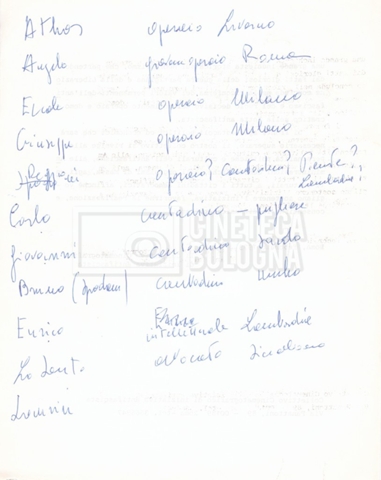 Athos operaio Livorno
Angelo giovane operaio Roma
Ercole operaio Milano
Giuseppe operaio Milano
operaio? Contadino? Tiente?
Lombardo?
Carlo contadino – pugliese
CINETECA
BOLOGNA
Giovanni contadino sardo
Bruno ( contadino
Enrico intellettuale Lombardia
Lo avvocato siciliano